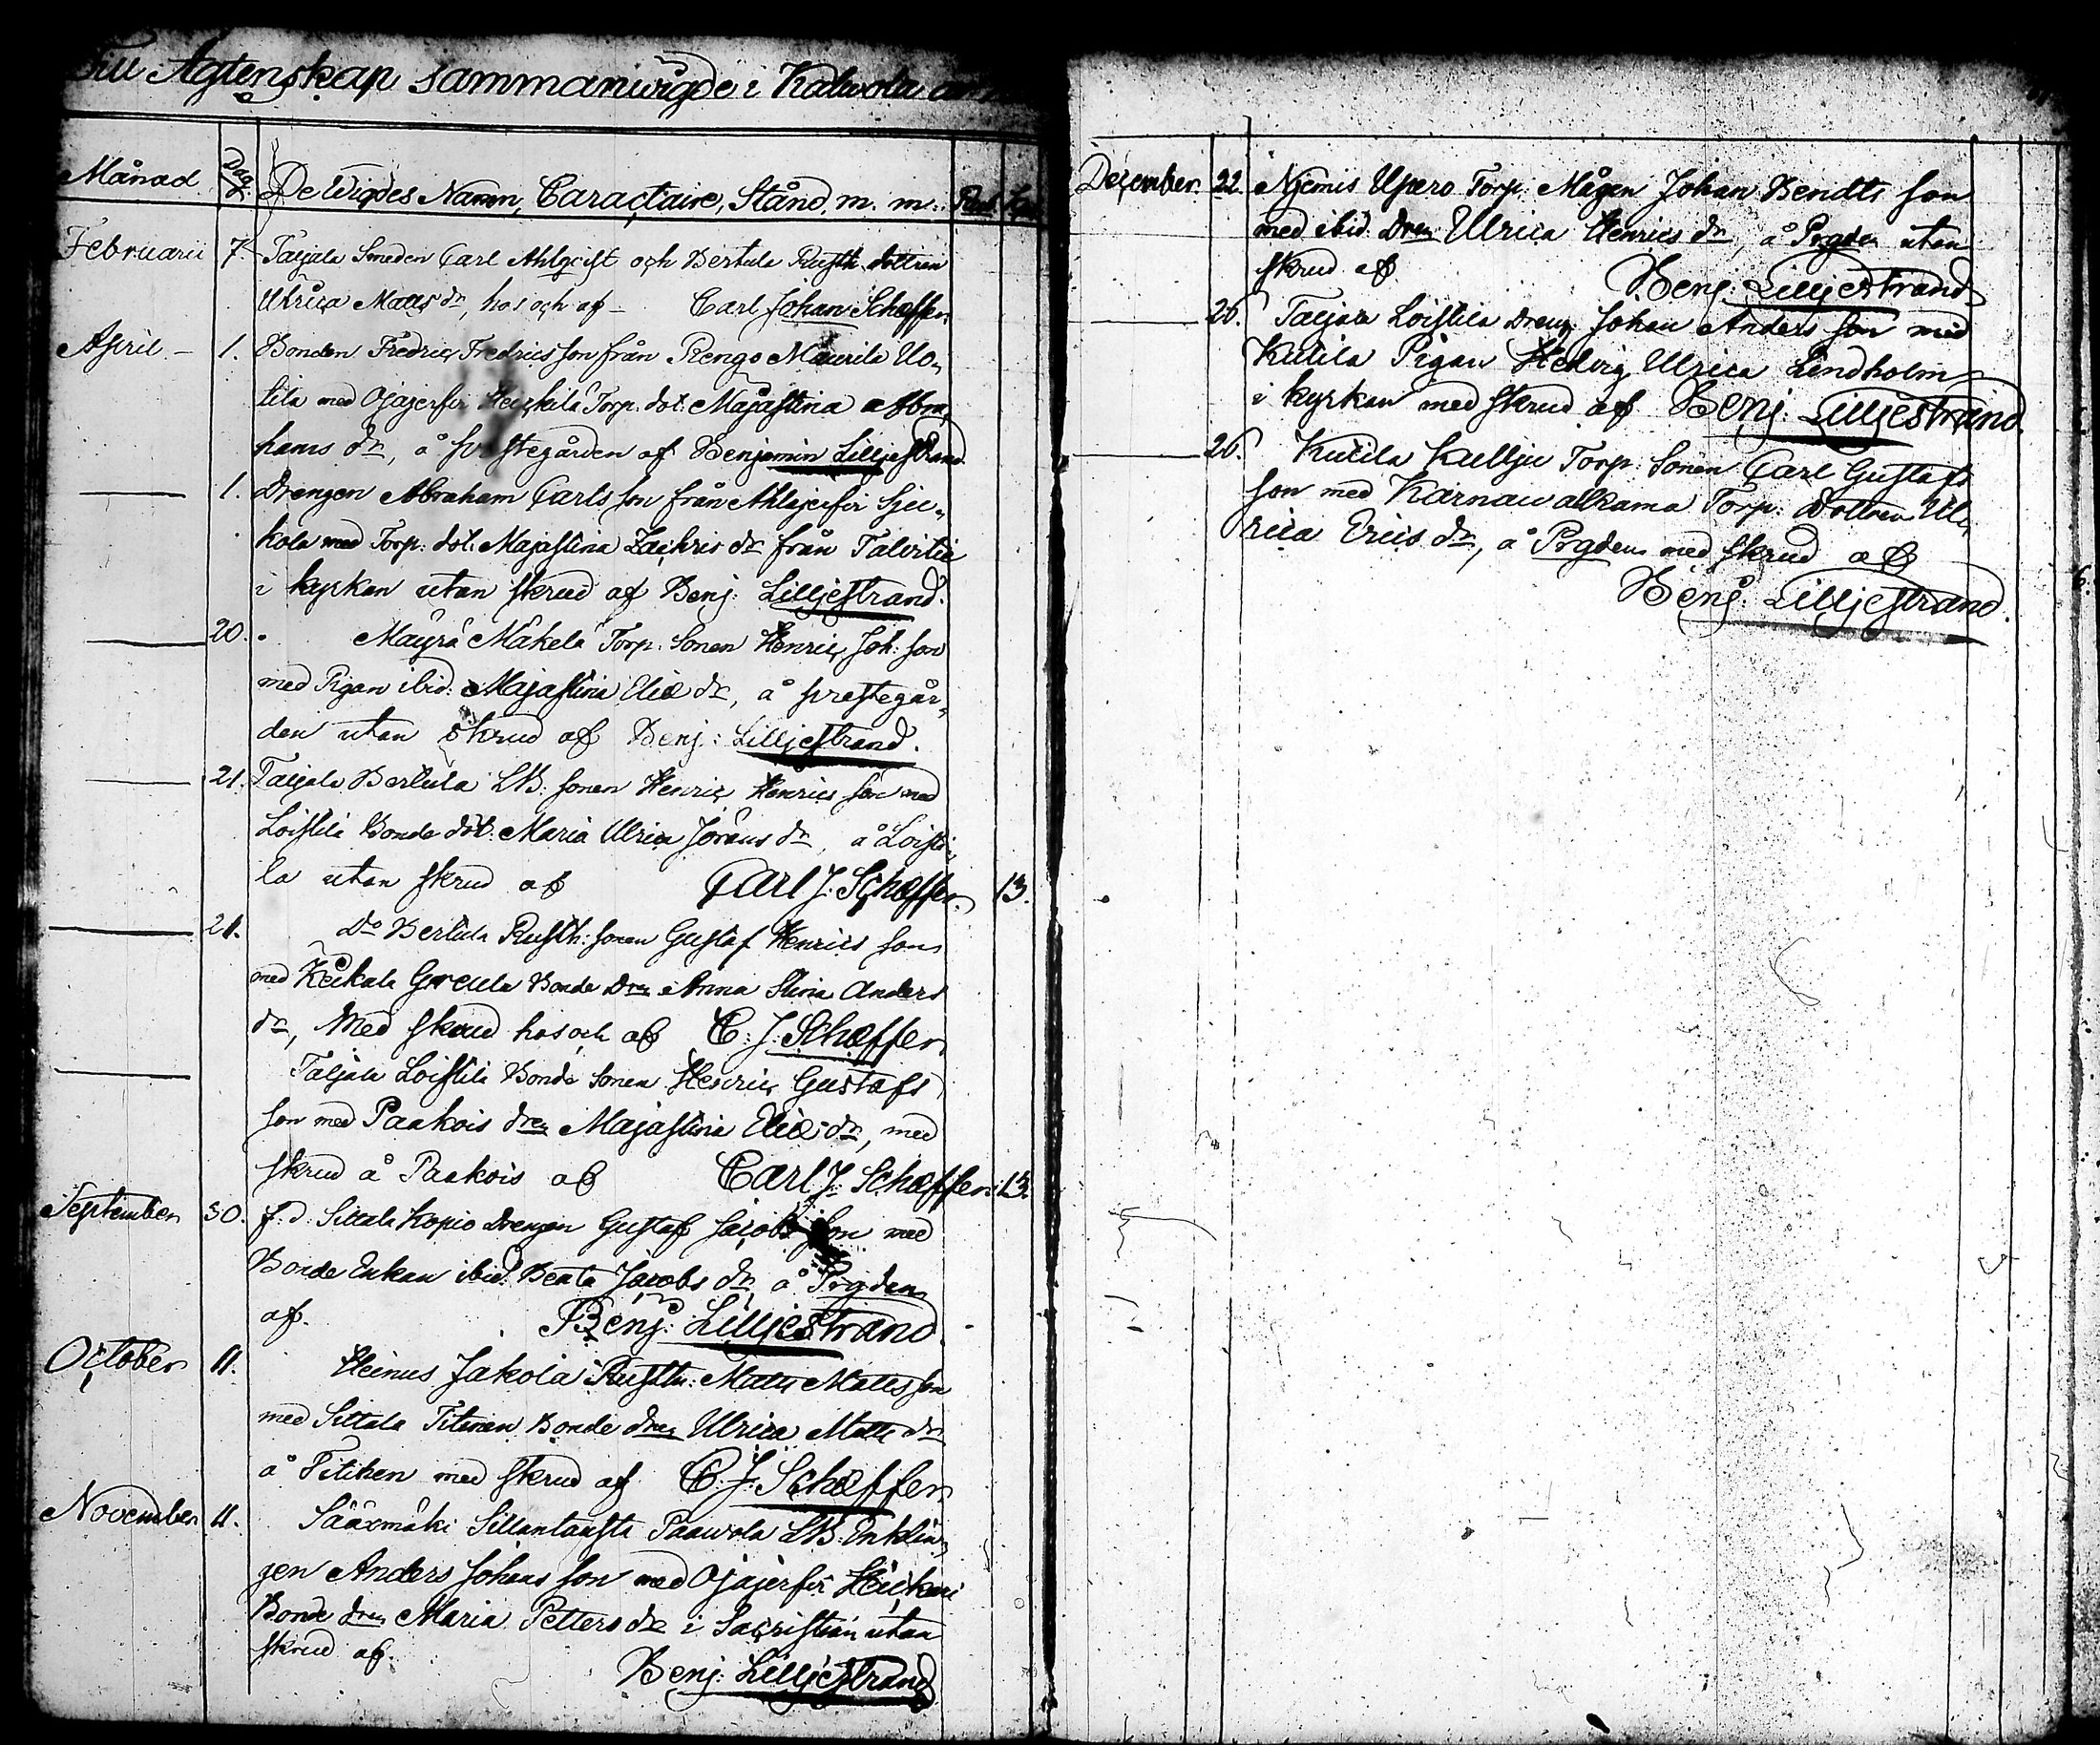 Till Ägtenskap sammanwigde i Kalwola
Månad Dag De Wigdes Namn, Caractaire, Stånd. m. m. Rub.
Februarii 7. Taljala Smeden Carl Ahlqvist och Bertula Rusth. dottren
Ulrica Matts dr, hos och af – Carl Johan Schæffer
April – 1. Bonden Fredric Fredrics son från Rengo Maurila Uo-
tila med Ojajerfvi Heickilä Torp. dot. Majastina Abra-
hams dr, å Prestegården af Benjamin Lilljestrand
1. Drengen Abraham Carls son från Ahlajerfvi Sju-
kola med Torp. dot. Majastina Zachris dr från Talvitie
i kyrkan utan skrud af Benj: Lilljestrand.
20. Mäyrä Mäkelä Torp. Sonen Henric Joh: son
med Pigan ibid: Majastina Eliæ dr, å prestegår-
den utan skrud af Benj: Lilljestrand.
21. Taljala Bertula LB: sonen Henric Henrics son med
Loistila Bonde dot. Maria Ulrica Jörans dr, å Loisti-
la utan skrud af Carl J: Schæffer. 13.
21. Do Bertula Rusth: sonen Gustaf Henrics son
med Keikala Greula Bonde Dren Anna Stina Anders
dr, Med skrud hos och af C: J: Schæffer
Taljala Loistila Bonde Sonen Henric Gustafs
son med Paakois dren Majastina Eliæ dr, med
skrud å Paakois af Carl J: Schæffer. 13.
September 30. f: d: Sittala Kopio Drengen Gustaf Jacobs son med
Bonde Enkan ibid: Beata Jacobs dr å Prgden
af. Benj: Lilljestrand.
October 11. Heinus Jakola Rusth: Matts Matts son
med Sittala Titinen Bonde dren Ulrica Matts dr
å Titinen med skrud af C. J: Schæffer
November 11. Sääxmäki Sillantausta Paawola LB: Enklin-
gen Anders Johans son med Ojajerfvi
Bonde dren Maria Petters dr i Sacristian utan
skrud af. Benj: Lilljestrand
December 22. Njemis Upero Torp: Mågen Johan Bendts son
med ibid: Dren Ulrica Henrics dr, å Prgden utan
skrud af Benj: Lilljestrand
26. Taljala Loistila Dreng Johan Anders son med
Kutila Pigan Hedvig Ulrica Lindholm
i kyrkan med skrud af Benj: Lilljestrand.
26. Kutila Kullju Torp: Sonen Carl Gustafs
son med Kärnau alkama Torp: Dottren Ul-
rica Erics dr, å Prgden med skrud af
Benj: Lilljestrand.